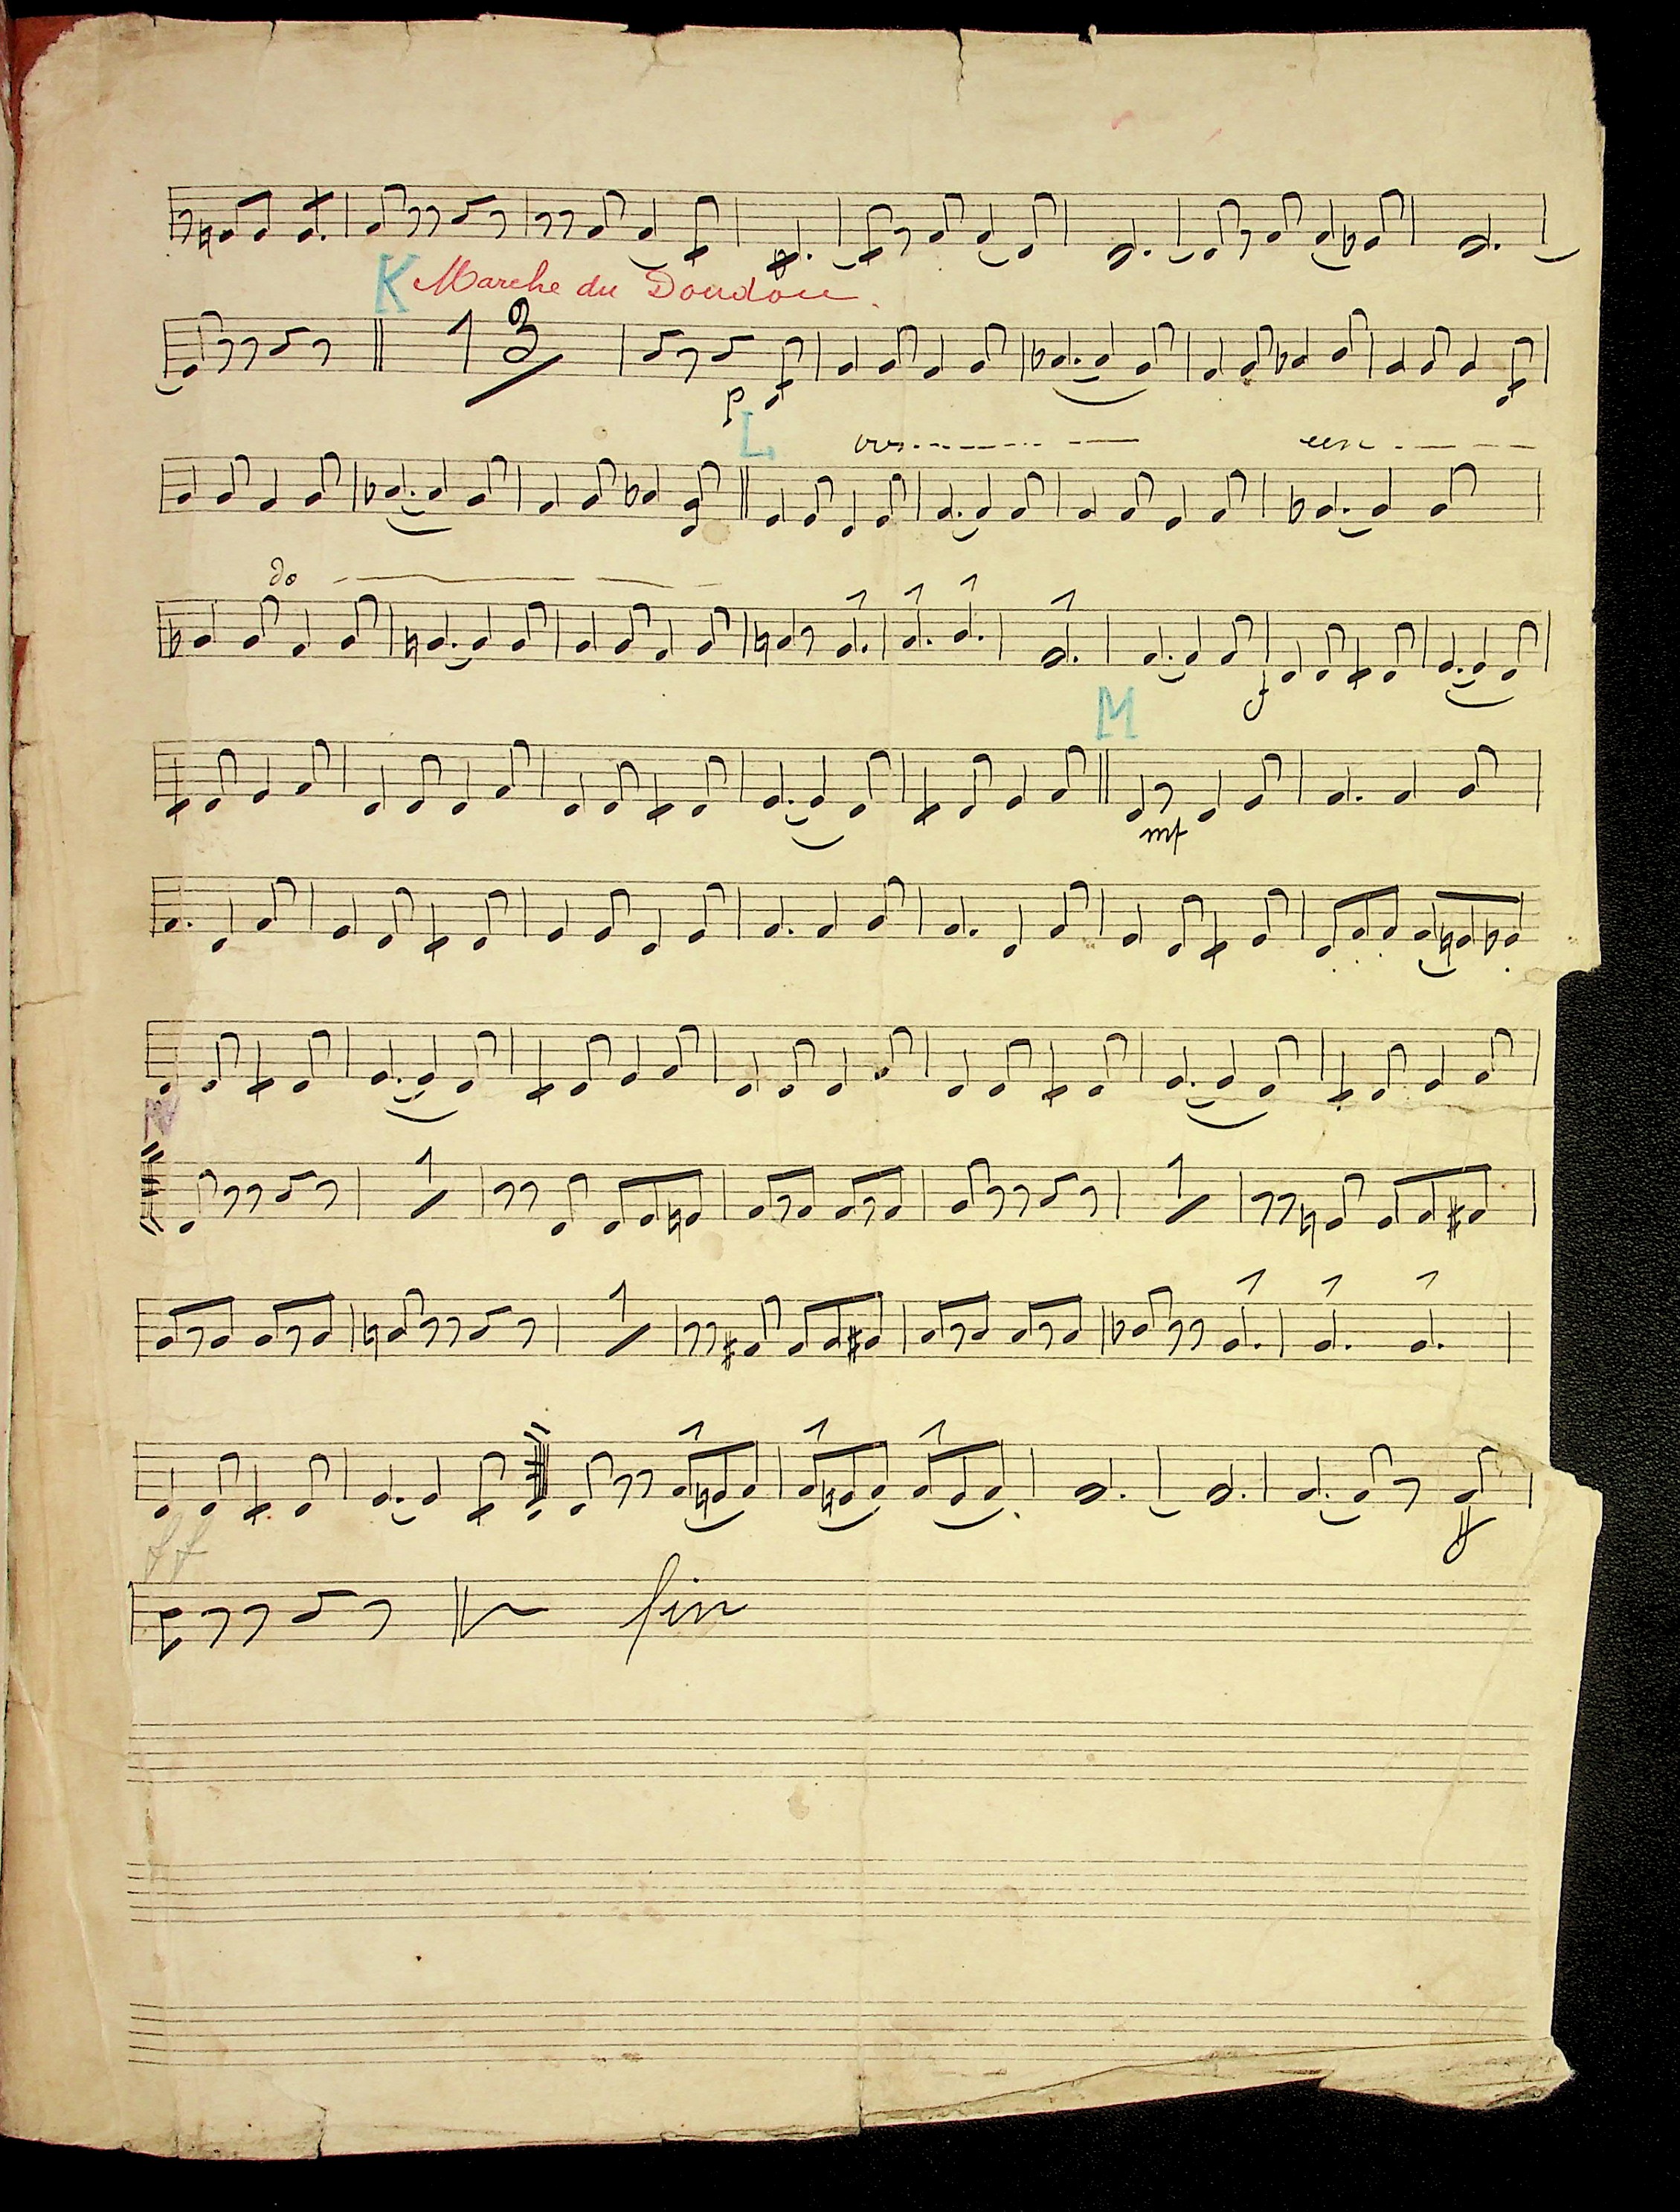 K Marche du Doudou.
1 3
p
L
cres - - - - - - cen - - - -
do - - - -
f
M
mf
1 1
1
ff
ff
fin